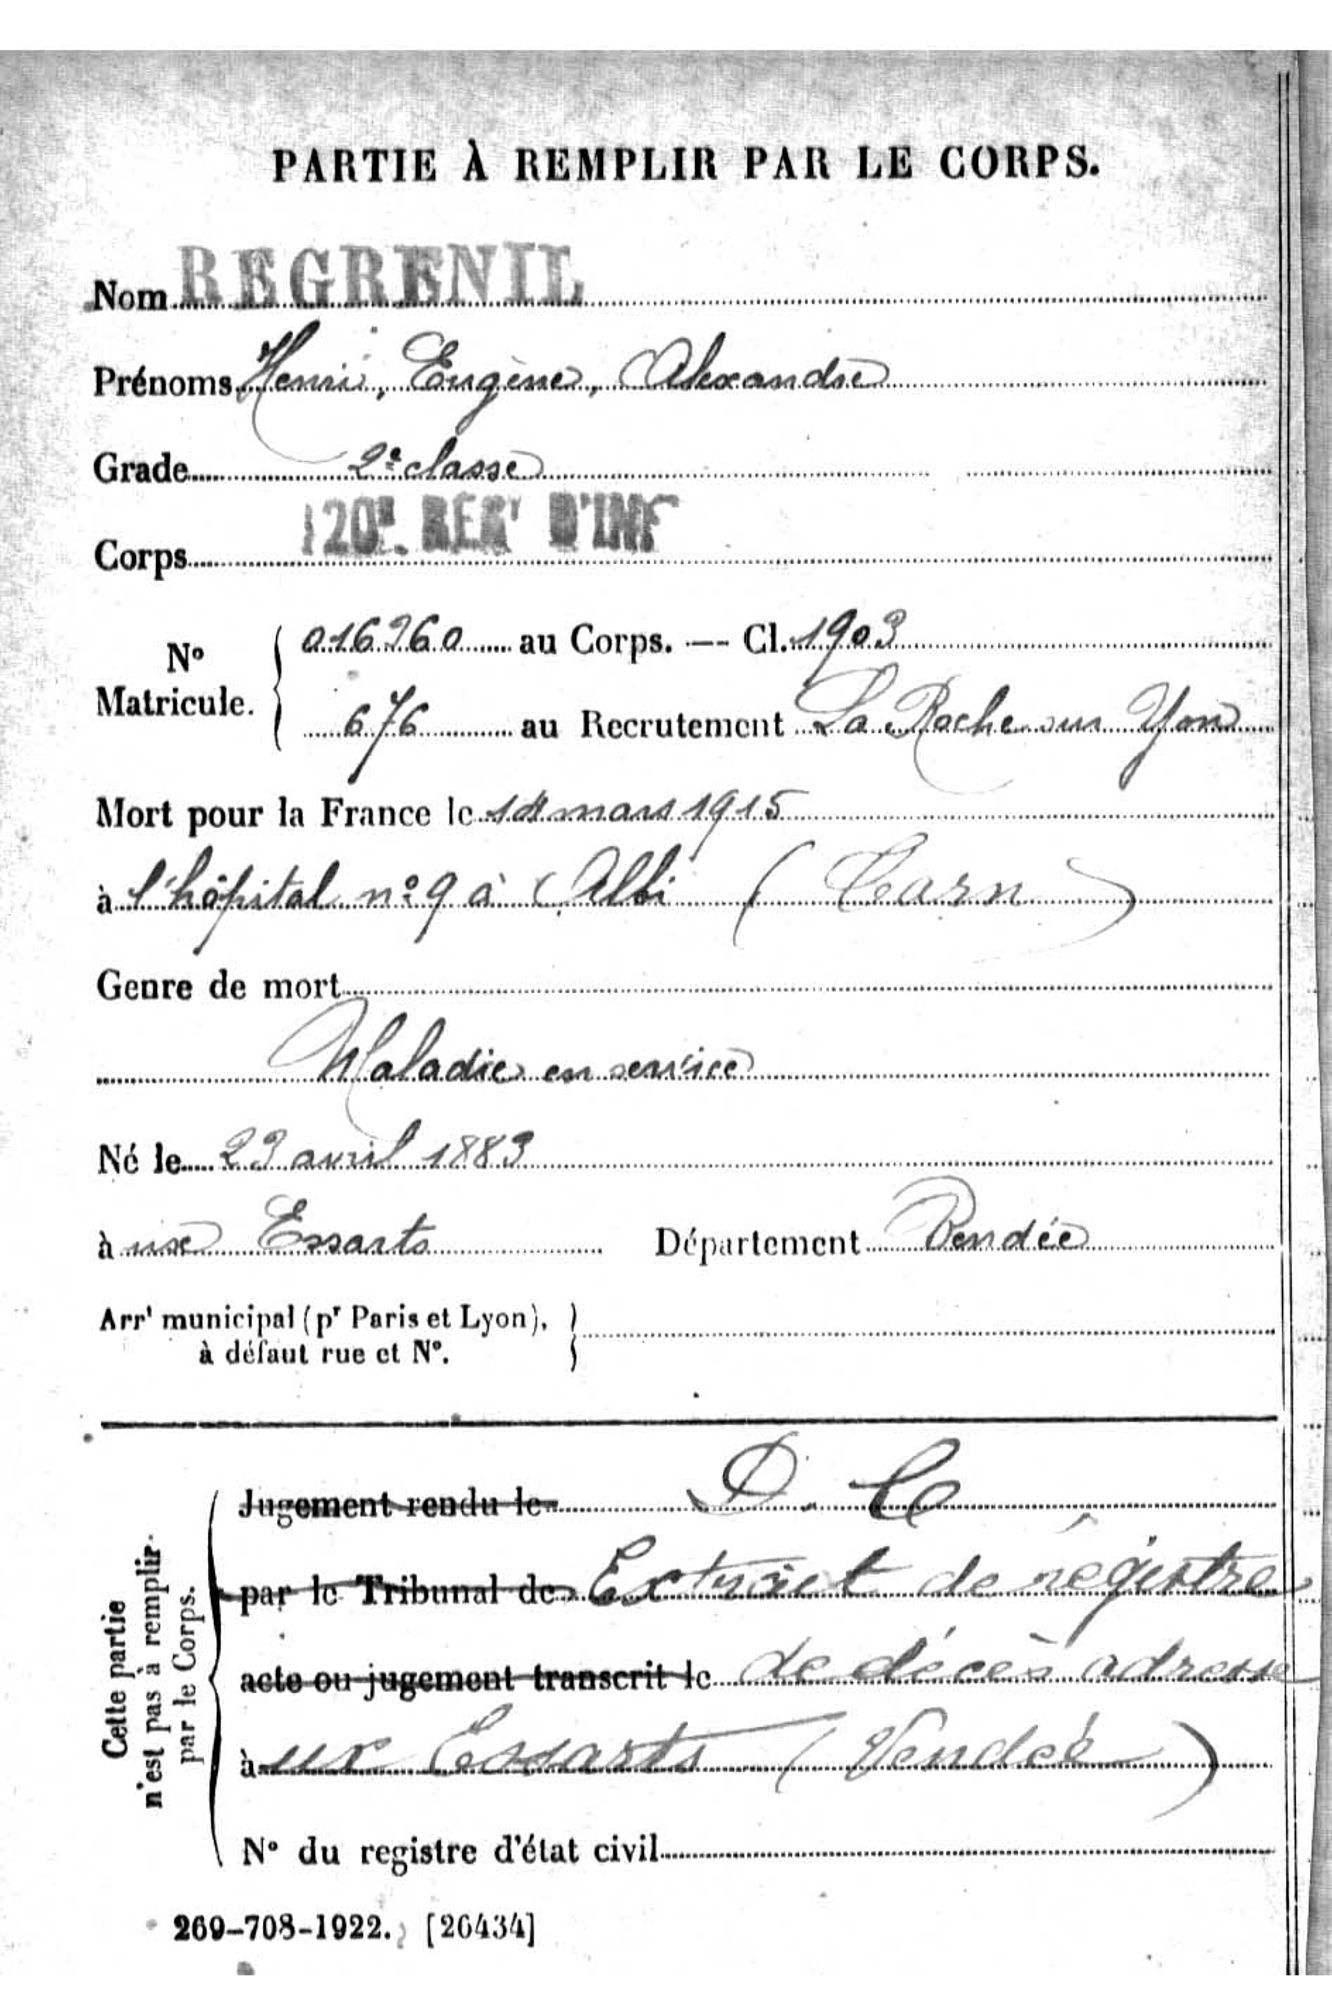 PARTIE À REMPLIR PAR LE CORPS.
Nom REGRENIL
Prénoms Henri, Eugène, Alexandre
Grade 2e classe
Corps 120E. REGt D'INF
No Matricule. 016260 au Corps. — Cl. 1903
676 au Recrutement La Roche sur Yon
Mort pour la France le 14 mars 1915
à l'hôpital no 9 à Albi (Tarn)
Genre de mort
Maladie en service
Né le 23 avril 1883
à ux Essarts Département Vendée
Arrt municipal (pr Paris et Lyon),
à défaut rue et No.
Cette partie
n'est pas à remplir
par le Corps.
Jugement rendu le D. C
par le Tribunal de Extrait de régistre
acte ou jugement transcrit le de décès adressé
à ux Essarts (Vendée)
No du registre d'état civil
269-708-1922. [26434]